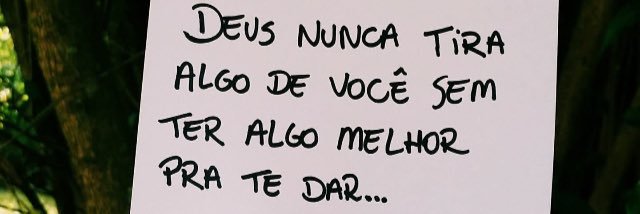 DEUS NUNCA TIRA
ALGO DE VOCÊ SEM
TER ALGO MELHOR
PRA TE DAR...